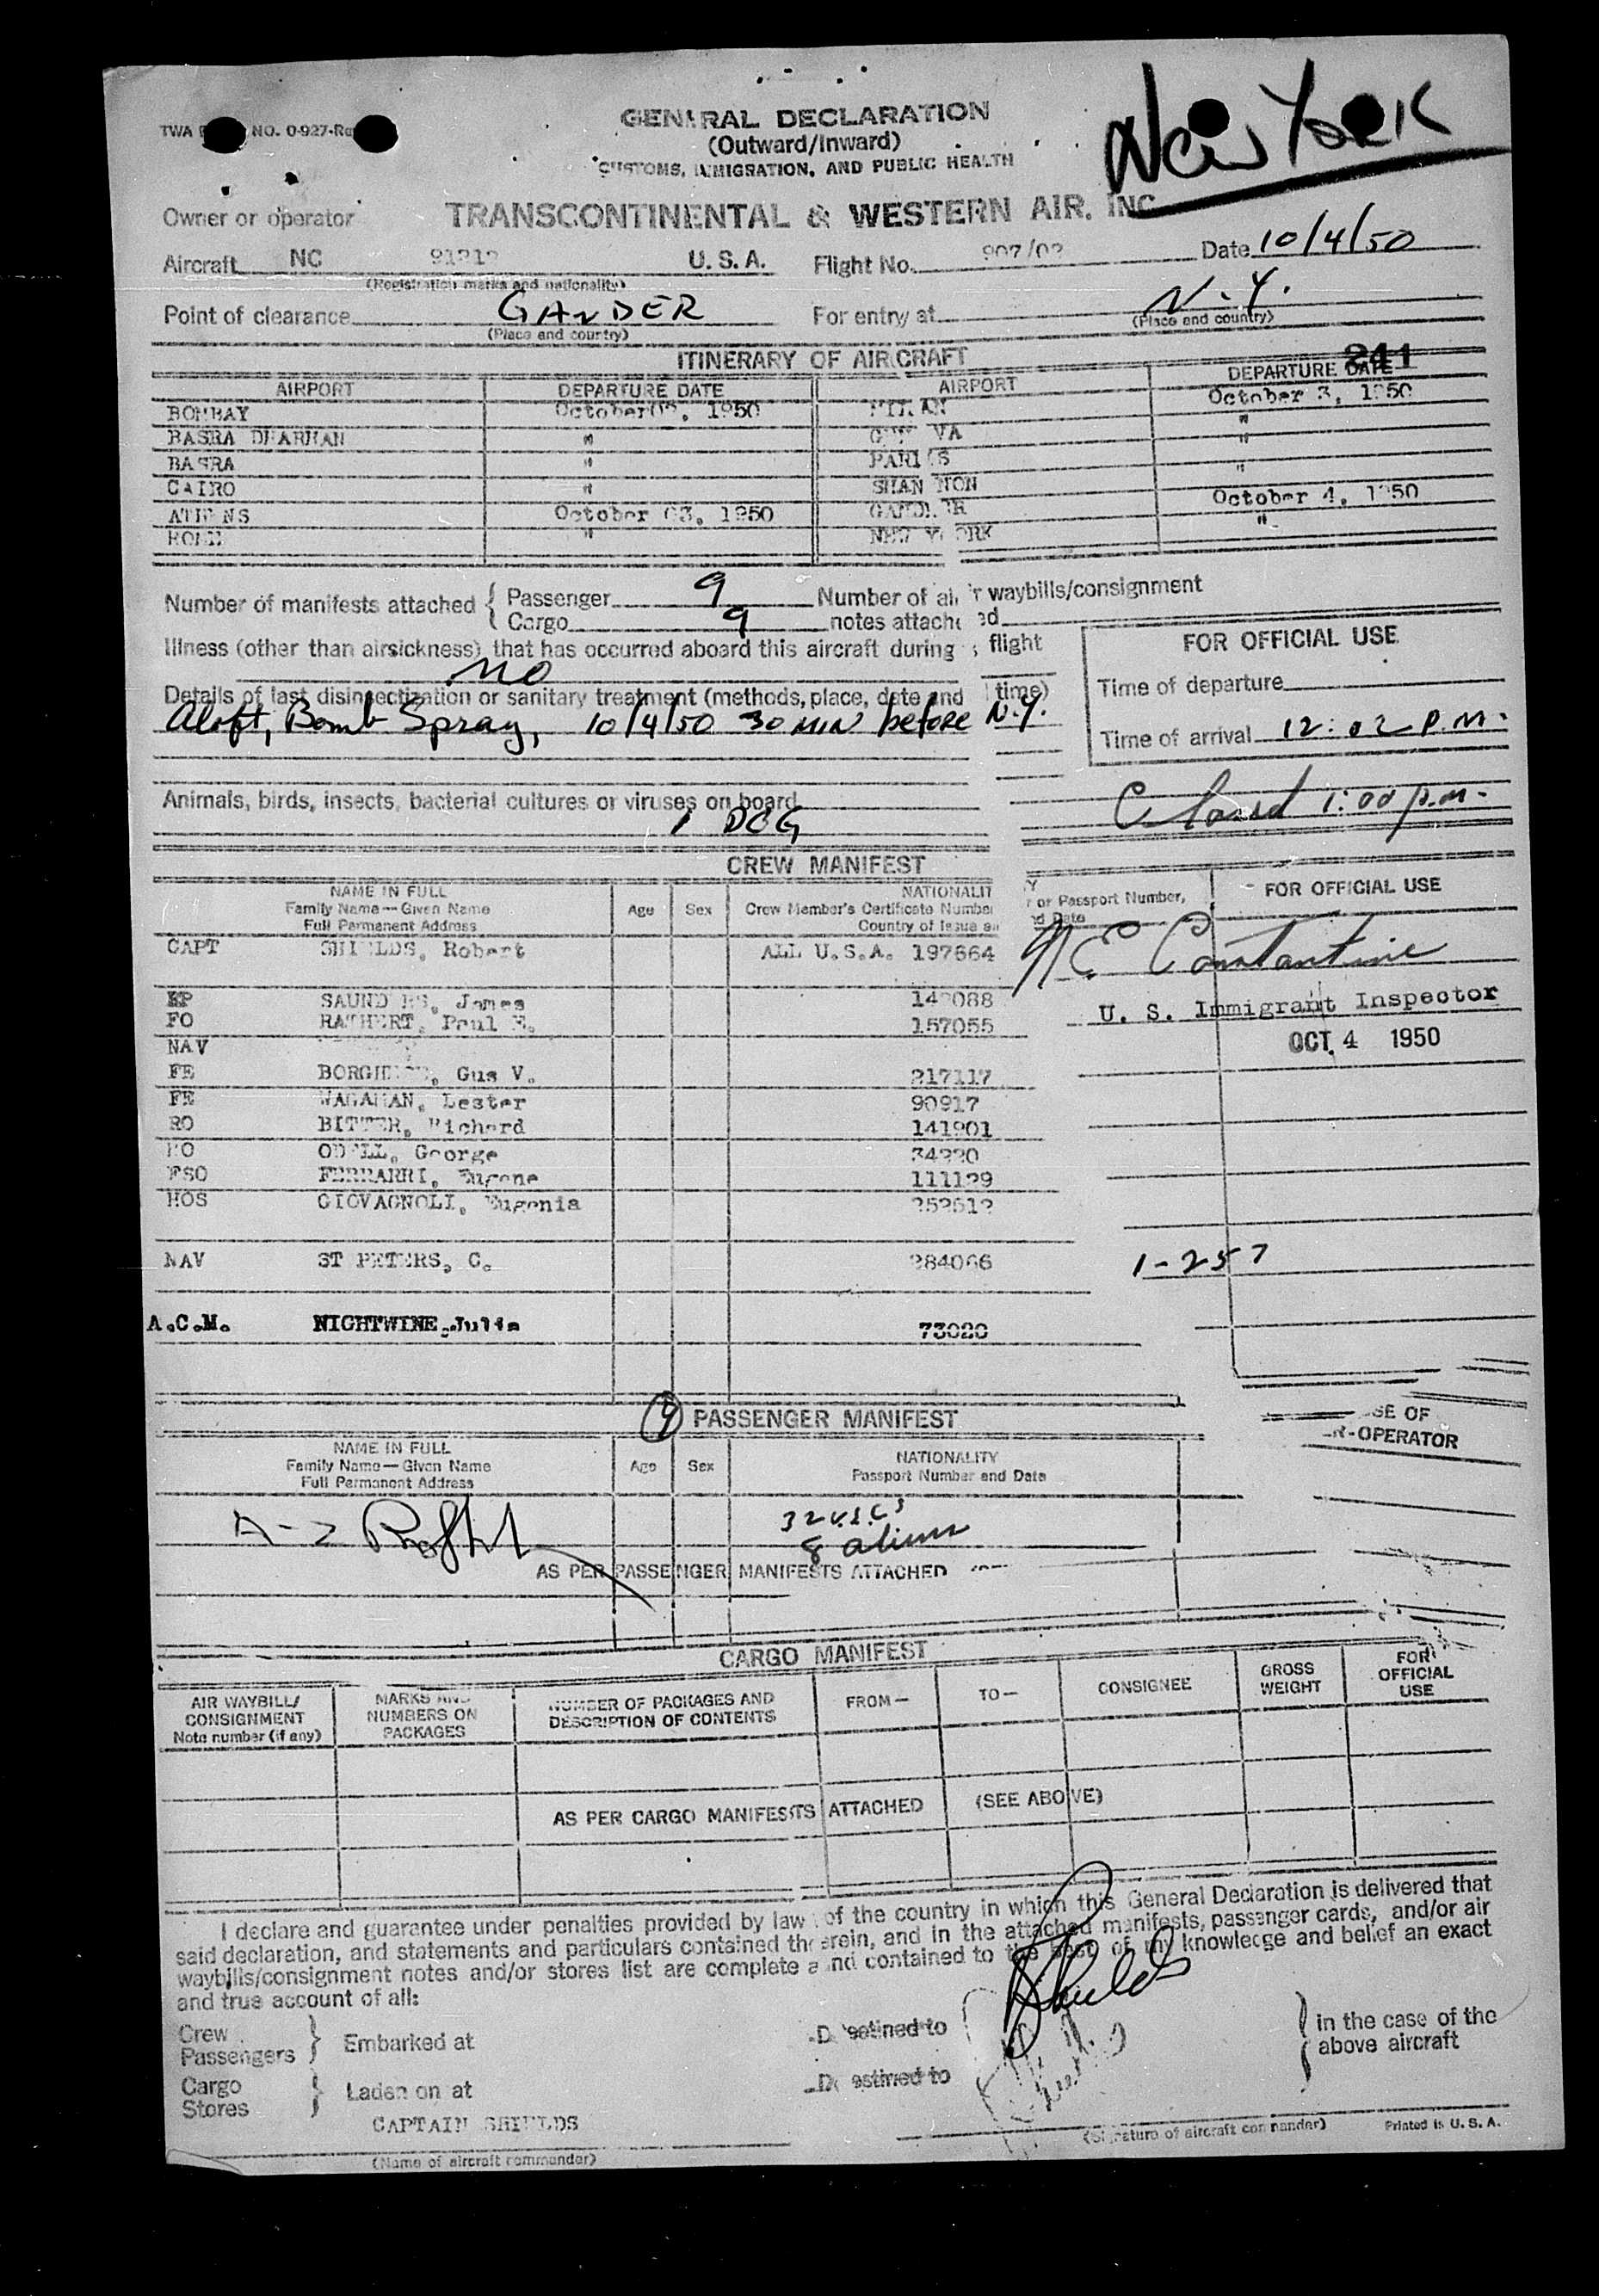 New York
GENERAL DECLARATION
(Outward/Inward)
CUSTOMS, IMMIGRATION, AND PUBLIC HEALTH
TWA NO. 0-927-Re
Owner or operator TRANSCONTINENTAL & WESTERN AIR. INC
Aircraft NC U. S. A. Flight No. 907/02 Date 10/4/50
(Registration marks and nationality)
Point of clearance GANDER For entry at N.Y.
(Place and country) (Place and country)
241
ITINERARY OF AIRCRAFT
AIRPORT DEPARTURE DATE AIRPORT DEPARTURE DATE
BOMBAY October 1950 October 3, 1950
BASRA DHARHAN " "
BASRA " PARIS "
CAIRO " SHANNON "
ATHENS October 03, 1950 October 4, 1950
ROME " NEW YORK "
Number of manifests attached { Passenger 9 Number of air waybills/consignment
Cargo 9 notes attached
Illness (other than airsickness) that has occurred aboard this aircraft during flight
no
Details of last disinsectization or sanitary treatment (methods, place, date and time)
Aloft, Bomb Spray, 10/4/50 30 MIN before N.Y.
FOR OFFICIAL USE
Time of departure
Time of arrival 12:02 P.M.
1:00 p.m.
Animals, birds, insects, bacterial cultures or viruses on board
1 DOG
CREW MANIFEST
NAME IN FULL
Family Name—Given Name
Full Permanent Address
Age Sex
NATIONALIT Y
Crew Member's Certificate Number or Passport Number,
Country of Issue and Date
FOR OFFICIAL USE
CAPT SHIELDS, Robert ALL U.S.A. 197664
N E Constantine
SAUNDERS, James
FO RATHERT, Paul E. 157055
U. S. Immigrant Inspector
NAV
OCT 4 1950
FE Gus V. 217117
FE WAGAMAN, Lester 90917
RO BITTER, Richard 141901
RO ODELL, George 34220
FSO FERRARRI, Eugene 111129
HOS GIOVAGNOLI, Eugenia
NAV ST PETERS, C. 284066 1-257
A.C.M. NIGHTWINE, Julia 73020
9 PASSENGER MANIFEST
SE OF
R-OPERATOR
NAME IN FULL
Family Name—Given Name
Full Permanent Address
Age Sex
NATIONALITY
Passport Number and Date
A-2
32 USCs
8 aliens
AS PER PASSENGER MANIFESTS ATTACHED
CARGO MANIFEST
AIR WAYBILL/
CONSIGNMENT
Note number (if any)
MARKS AND
NUMBERS ON
PACKAGES
NUMBER OF PACKAGES AND
DESCRIPTION OF CONTENTS
FROM—
TO—
CONSIGNEE
GROSS
WEIGHT
FOR
OFFICIAL
USE
AS PER CARGO MANIFESTS ATTACHED (SEE ABOVE)
I declare and guarantee under penalties provided by law of the country in which this General Declaration is delivered that
said declaration, and statements and particulars contained therein, and in the attached manifests, passenger cards, and/or air
waybills/consignment notes and/or stores list are complete and contained to the best of my knowledge and belief an exact
and true account of all:
Crew
Passengers } Embarked at Destined to
Cargo
Stores } Laden on at Destined to
} in the case of the
above aircraft
R Shields
CAPTAIN SHIELDS
(Name of aircraft commander)
(Signature of aircraft commander)
Printed in U. S. A.